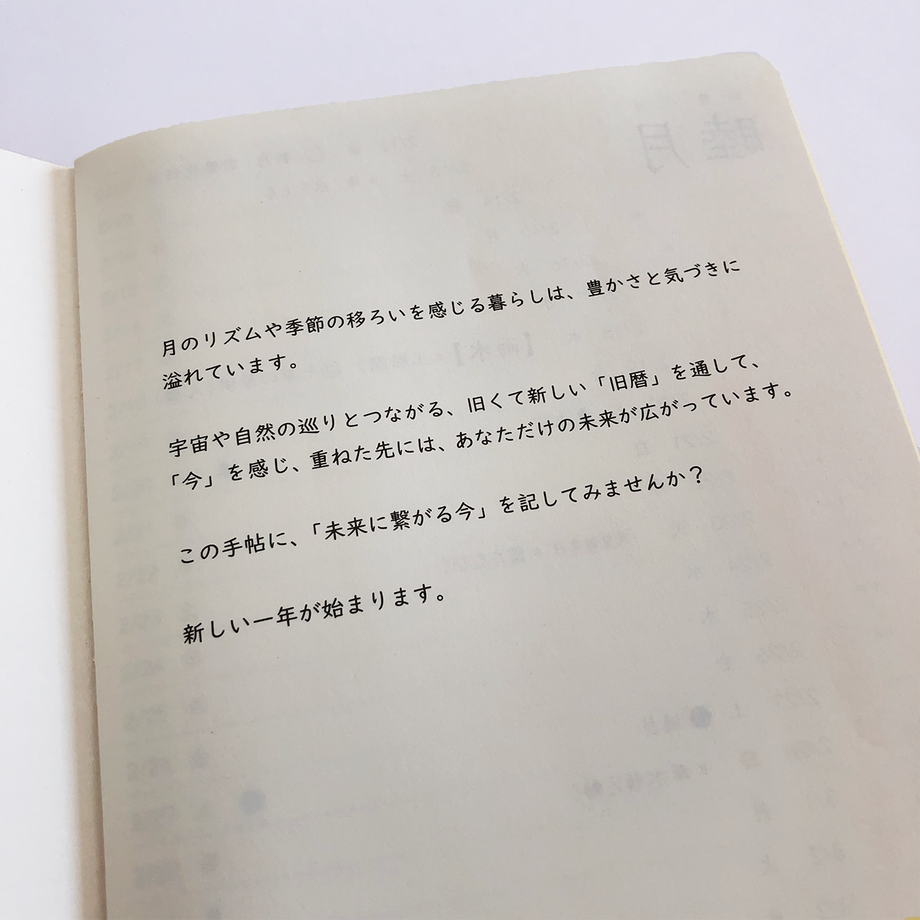 月のリズムや季節の移ろいを感じる暮らしは、豊かさと気づきに
溢れています。
宇宙や自然の巡りとつながる、旧くて新しい「旧暦」を通して、
「今」を感じ、重ねた先には、あなただけの未来が広がっています。
この手帖に、「未来に繋がる今」を記してみませんか？
新しい一年が始まります。
睦月
【雨水】